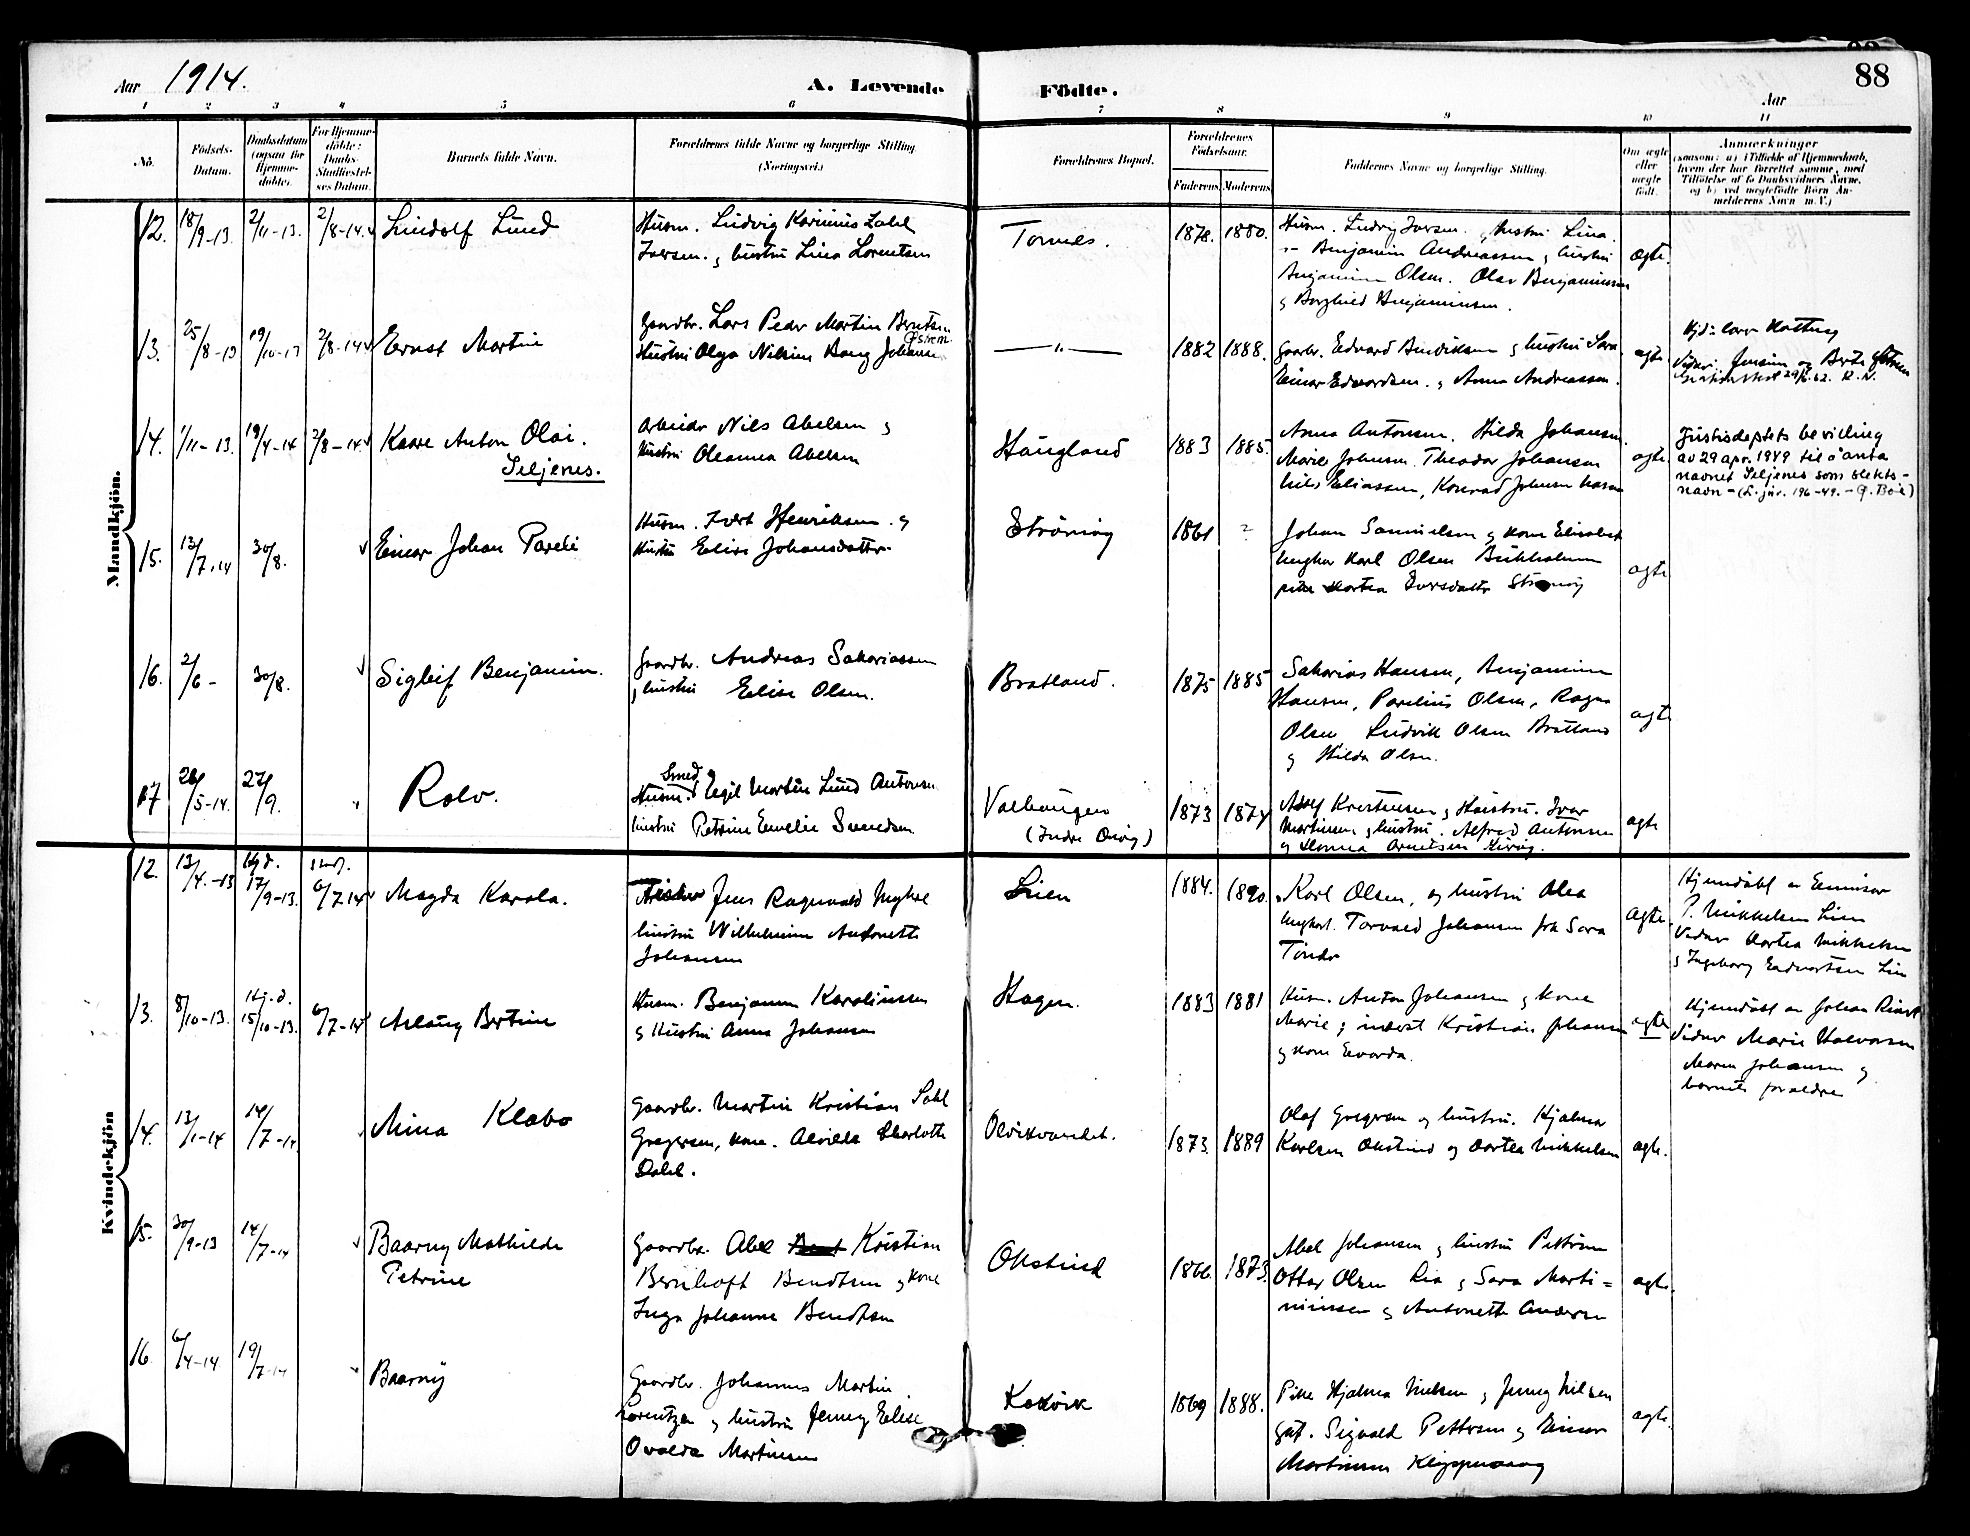 Aar 1914.
A. Levende Födte.
88
Aar
1 2 3 4 5 6 7 8 9 10 11
No.
Födsels-
Datum.
Daabsdatum
(ogsaa for
Hjemme-
döbte).
For Hjemme-
döbte:
Daabs-
Stadfæstel-
ses Datum.
Barnets fulde Navn.
Forældrenes fulde Navne og borgerlige Stilling
(Næringsvei.)
Forældrenes Bopæl.
Forældrenes
Födselsaar.
Faderens Moderens
Faddernes Navne og borgerlige Stilling.
Om ægte
eller
uægte
födt.
Anmærkninger
(saasom: a) i Tilfælde af Hjemmedaab,
hvem der har forrettet samme, med
Tilföielse af to Daabsvidners Navne,
og b) ved uægtefödte Börn An-
melderens Navn m. V.)
Mandkjön.
12. 18/9-13. 2/11-13. 2/8-14. Lindolf Lund
Husm. Ludvig Karinius Zahl
Iversen. og hustru Lina Lorentsen
Tonnes. 1878. 1880.
Husm. Ludvig Iversen. og hustru Lina.
Benjamin Andreassen og hustru
Benjamine Olsen. Olav Benjaminsen
og Borghild Benjaminsen.
ægte.
13. 25/8-13 19/10-13 2/8-14 Ernst Martin
Gaardbr. Lars Peder Martin Berntsen
Østrem.
Hustru Olga Nilsine Bang Johansen
—„— 1882 1888.
Gaarbr. Edvard Bendiksen og hustru Sara
Einar Edvardsen. og Anna Andreassen.
ægte
14. 1/11-13. 19/4-14 2/8-14 Kaare Anton Olai.
Seljenes.
Arbeider Nils Abelsen og
Hustru Oleanna Abelsen
Haugland 1883 1885.
Anna Antonsen. Hilda Johansen.
Marie Johnsen. Theodor Johansen
Nils Eliassen, Konrad Johnsen
ægte.
Justisdeptets bevilling
av 29 apr. 1949 til å anta
navnet Seljenes som slekts-
navn - (L. jnr. 196-49. - G. Boie)
15. 13/7-14 30/8. Einar Johan Pareli
Husm. Ivert Henriksen. og
Hustru Elise Johansdatter
Strömöy 1861 ?
Johan Samuelsen og kone Elisabet
Ungkar Karl Olsen
pike Hortea Iversdatter Strömöy
ægte
16. 2/6- 30/8. Sigleif Benjamin.
Gaardbr. Andreas Sakariassen
og hustru Elise Olsen.
Bratland. 1875 1885
Sakarias Hansen, Benjamin
Hansen, Parelius Olsen, Ragna
Olsen Ludvik Olsen Bratland
og Hilda Olsen.
ægte
17 26/5-14. 27/9. Rolv.
Smed
Husm. Eegil Martin Lund Antonsen
hustru Petrine Emelie Svendsen
Valhaugen
(Indre Qvig) 1873 1874
Adolf Kristensen og Hustru. Ivar
Martinsen og hustru. Alfred Antonsen
og Hanna Arntsen
ægte
Kvindekjön
12. 13/4.-13 Hjd. 17/9-13. 6/7-14 Magda Karola.
Fisker Jens Ragnvald
hustru Wilhelmine Antonette
Johansen
Lien 1884. 1890.
Karl Olsen, og hustru Olea
Ungkarl. Torvald Johansen fra Sara
ægte
Hjemdöbt av Enmisar
P. Mikkelsen Lien
Vidner Dortea Mikkelsen
og Ingeborg Edvartsen Lien
13. 8/10-13. Hj.d. 15/10-13. 6/7-14 Aslaug Bertine
Husm. Benjamin Karolinssen
og Hustru Anna Johansen
Hagen. 1883 1881
Husm. Anton Johansen og kone
Marie og inderst Kristian Johansen
og kone Evarda.
ægte
Hjemdöbt av Johan
Vidner Marie Halvorsen
Maren Johansen og
barnets foraldre
14. 13/1-14 14/7-14. Mina Klæbo
Gaardbr. Martin Kristian Dahl
Gregersen, kone. Alvilde Charlotte
Dahl.
Olvikvandet. 1873. 1889
Olaf Gregersen og hustru. Hjalmar
Karlsen Okstind og Dortea Mikkelsen
ægte.
15. 30/9-13 14/7-14 Baarny Mathilde
Petrine
Gaardbr. Abel Kristian
Bernhoft Bendtsen og kone
Inga Johanne Bendtsen
Okstind 1866 1873.
Abel Johansen og hustru Petrine
Ottar Olsen Lia og Sara Marti=
niussen og Antonette Andersen
ægte.
16. 6/4-14. 19/7-14 Baarny
Gaardbr. Johannes Martin
Lorentzen og hustru Jenny Elise
Ovalda Martinsen
Kokvik 1869 1888.
Pike Hjalma Nielsen og Jenny Nilsen
gift. Sigvald Pettersen og Einar
Martinsen
ægte.